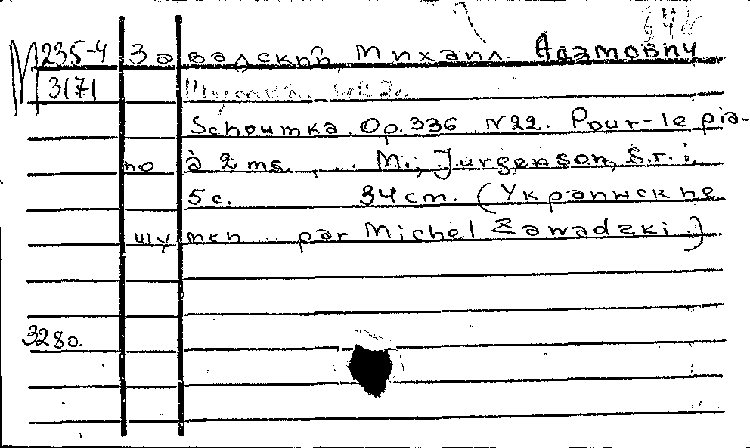 М 235-4 Завадский, Михаил Адамович
3171
Schoumka. Op. 336 N22. Pour-le pia-
no à 2 ms. ... M., Jurgenson, S. r. i.
5 с. 34 cm. (Украинские
шумки .. par Michel Zawadzki.)
3280.